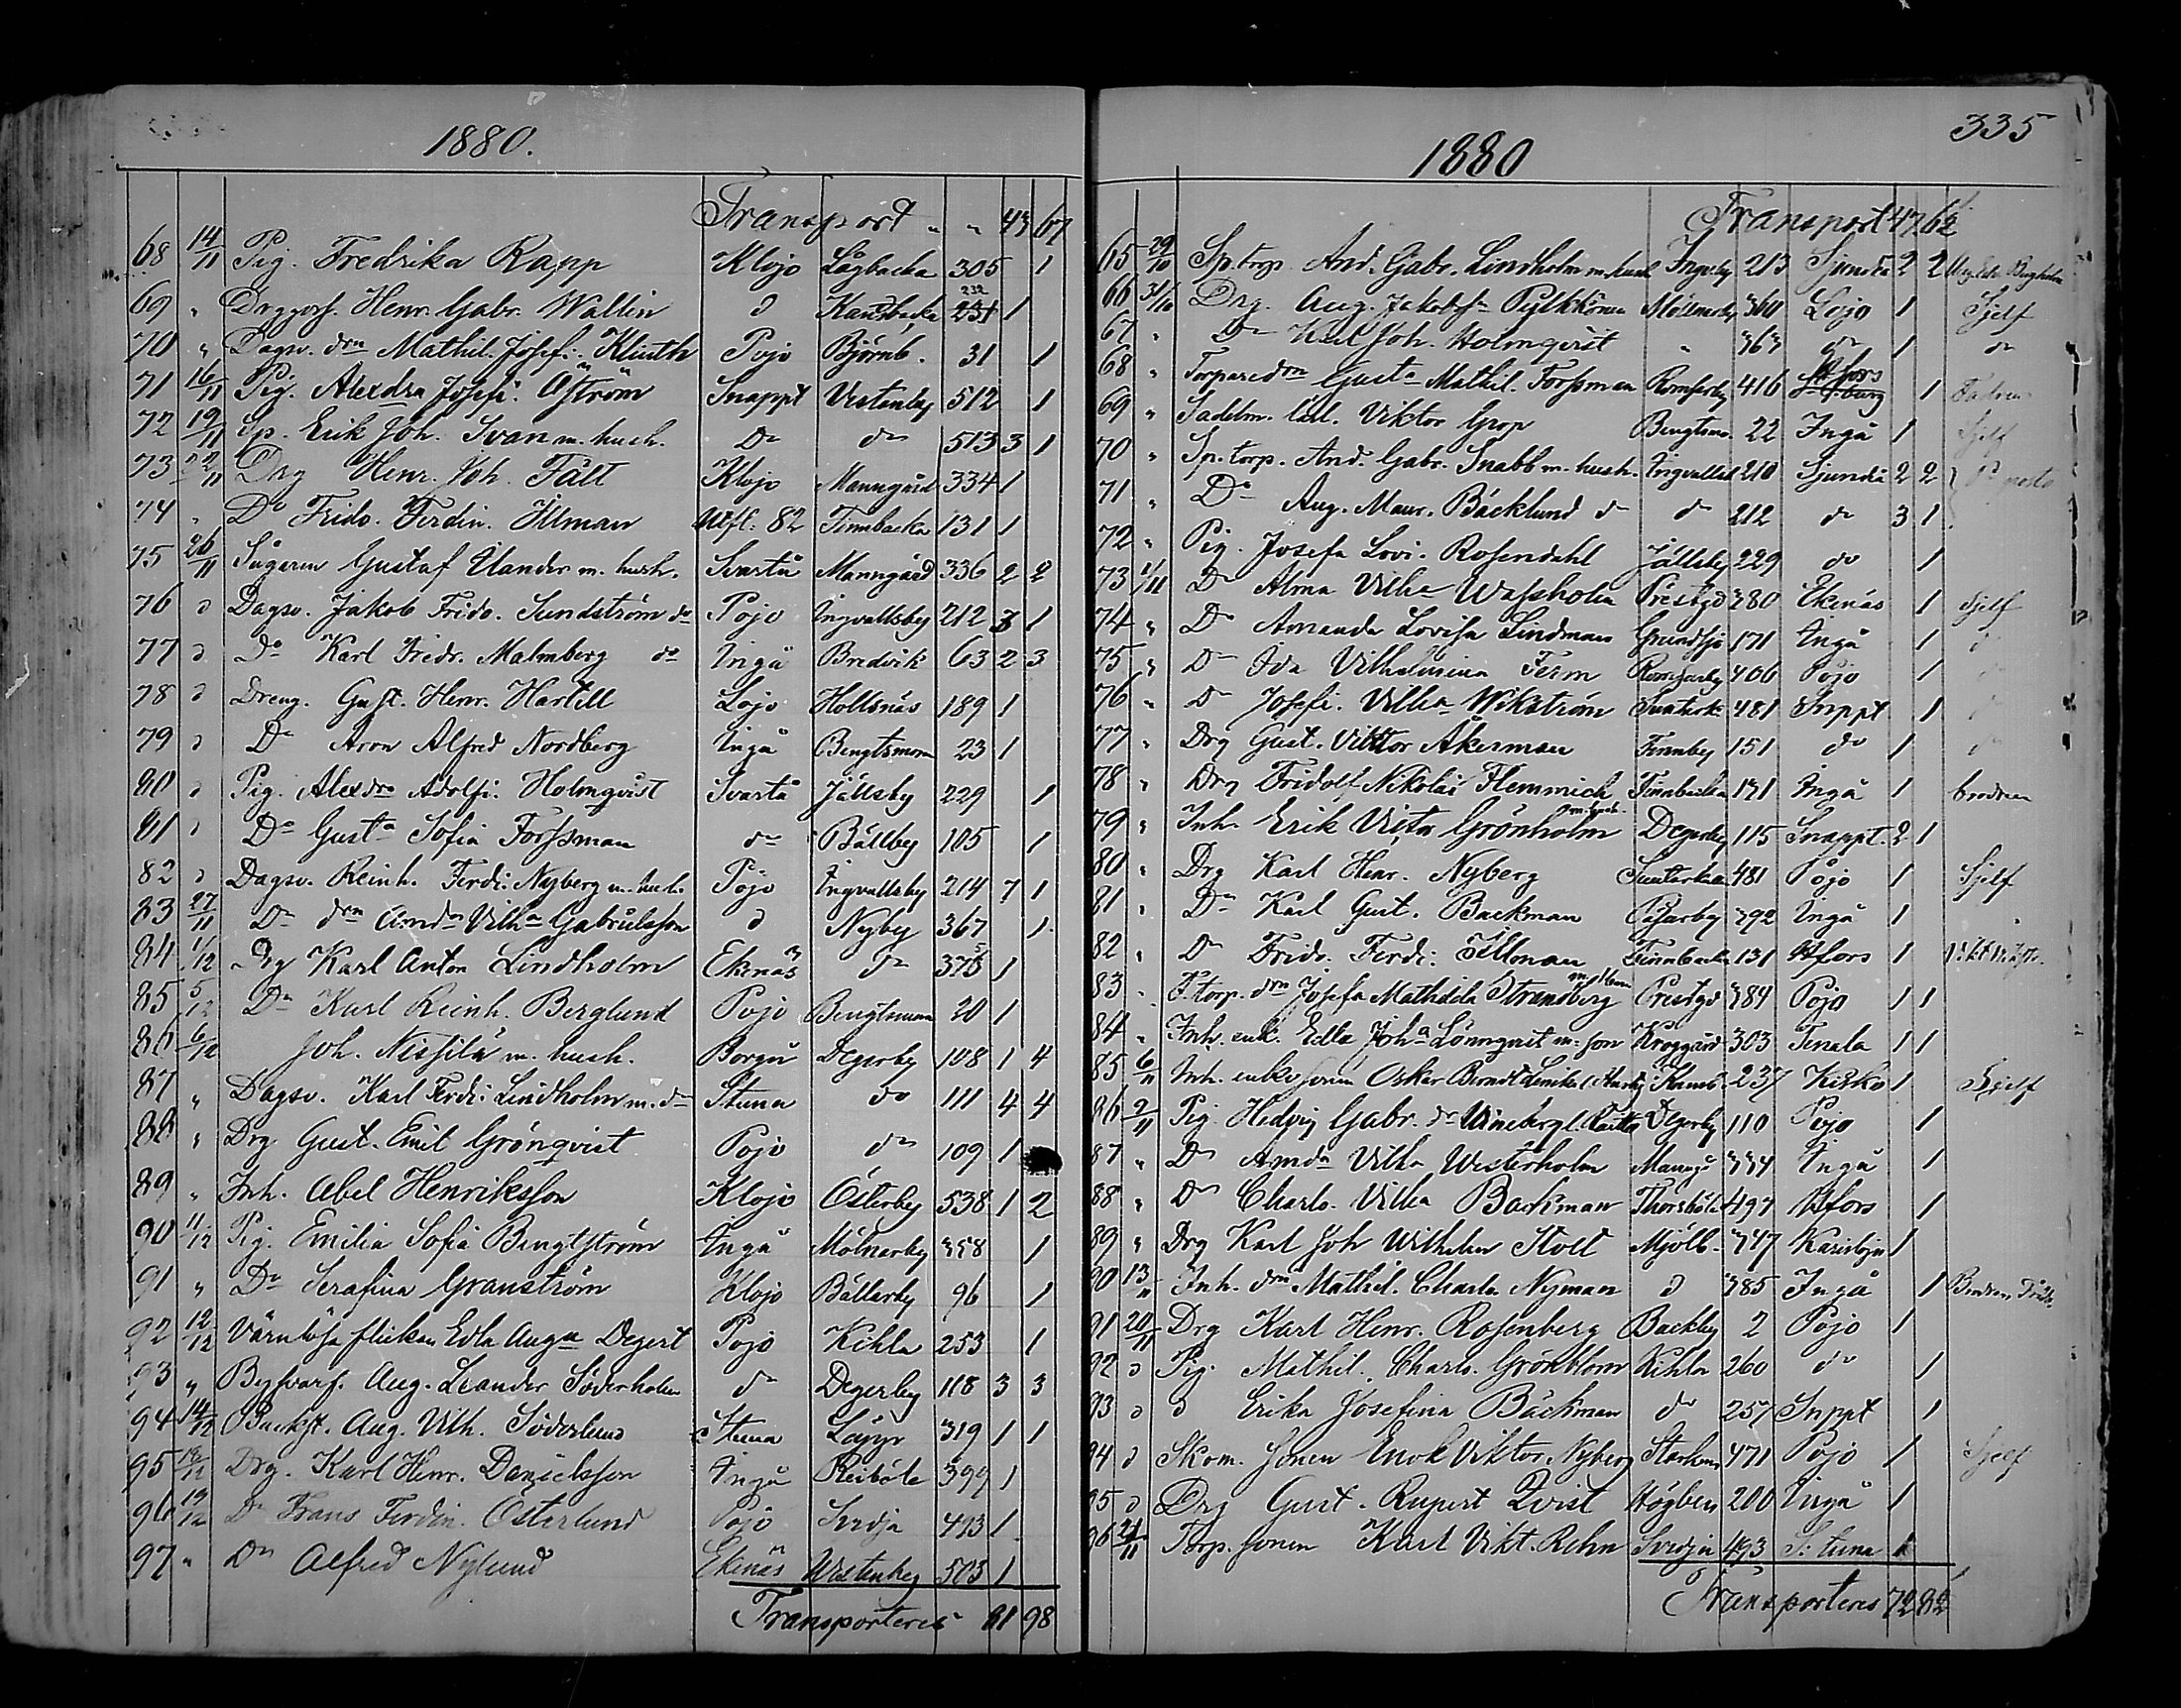 1880.
Transport " " 43 67
68 14/11 Pig. Fredrika Rapp Klojo Lågbacka 305 1
69 " Drggoss. Henr. Gabr. Wallin d Kansbacka 232 231 1
70 " Dagsv. drn Mathil. Josefi. Klinth Pojo Björnb. 31 1
71 16/11 Pig. Alexdra Josefi. Åström Snappt Vestanby 512 1
72 19/11 Sp. Erik Joh. Svan m. hush. Do do 513 3 1
73 22/11 Drg Henr. Joh. Fält Klojo Manngård 334 1
74 " Do Frido. Ferdin. Illman Utfl. 82 Finnbacka 131 1
75 26/11 Sågaren Gustaf Ulander m. hush. Svartå Manngård 336 2 2
76 d Dagsv. Jakob Frido. Sundström do Pojo Ingvallsby 212 3 1
77 d Do Karl Fredr. Malmberg do Ingå Bredvik 63 2 3
78 d Dreng. Gust. Henr. Hartell Lojo Hollsnäs 189 1
79 d Do Aron Alfred Nordberg Ingå Bengtsmora 23 1
80 d Pig. Alexdra Adolfi. Holmqvist Svartå Jällsby 229 1
81 d Do Gusta Sofia Forssman do Bällby 105 1
82 d Dagsv. Reinh. Ferdi. Nyberg m. hush. Pojo Ingvallsby 214 7 1
83 27/11 Do drn Amda Vilha Gabrielsson d Nyby 367 1
84 1/12 Drg Karl Anton Lindholm Ekenäs do 375 1
85 5/12 Do Karl Reinh. Berglund Pojo Bengtsmora 20 1
86 6/12 Joh. Nissilä m. hush. Borgå Degerby 108 1 4
87 " Dagsv. Karl Ferdi. Lindholm m. do Stuna do 111 4 4
88 " Drg Gust. Emil Grönqvist Pojo do 109 1
89 " Inh. Abel Henriksson Klojo Österby 538 1 2
90 11/12 Pig. Emilia Sofia Bengtström Ingå Mölnarby 358 1
91 " Do Serafina Granström Klojo Bällarby 96 1
92 12/12 Värnlösa flickan Edla Auga Degert Pojo Kihla 253 1
93 " Aug. Leander Söderholm do Degerby 118 3 3
94 14/12 Backst. Aug. Vilh. Söderlund Stuna Läpp 319 1 1
95 Drg. Karl Henr. Danielsson Ingå Reiböle 399 1
96 19/12 Do Frans Ferdin. Österlund Pojo Svedja 493 1
97 " Do Alfred Nylund Ekenäs Westanby 503 1
Transporteres 81 98
335
1880
Transport 47 62
65 29/10 Sp. torp. And. Gabr. Lindholm m. hush Ingvby 213 Sjundå 2 2
66 31/10 Drg. Aug. Jakobss Pylkkönen Mölnarby 360 Lojo 1 Sjelf
67 " Do Karl Joh. Holmqvist " 363 do 1 do
68 " Torparedrn Gusta Mathil. Forssman Romsarby 416 Hfors 1
69 " Sadelm. Viktor Grop Bengtsmo. 22 Ingå 1 Sjelf
70 " Sp. torp. And. Gabr. Snabb m. hush. Ingvallsb 210 Sjundå 2 2
71 " Do Aug. Maur. Bäcklund do do 212 do 3 1
72 " Pig. Josefa Lovi. Rosendahl Jällsby 229 do 1
73 1/11 Do Alma Vilha Wassholm Prestgd 380 Ekenäs 1 Sjelf
74 " Do Amanda Lovisa Lindman Grundsjö 171 Ingå 1 d
75 " Do Ida Vilhelmina Ferm Romsarby 406 Pojo 1
76 " Do Josefi. Vilha Wikström Sunterk. 481 Snppt 1
77 " Drg Gust. Viktor Åkerman Finnby 151 do 1
78 " Drg Fridolf Nikolai Flemmich Finnbacka 131 Ingå 1 brodren
79 " Inh. Erik Victor Grönholm m. hush. Degerby 115 Snappt. 2 1
80 " Drg Karl Henr. Nyberg Sunterkulla 481 Pojo 1 Sjelf
81 " Do Karl Gust. Backman Påsarby 392 Ingå 1 "
82 " Do Frido. Ferdi. Illman Finnbacka 131 Hfors 1
83 " F. torp. drn Josefa Mathilda Strandberg Prestgd 384 Pojo 1 1
84 " Inh. enk. Edla Joha Lönnqvist m. son Kroggård 303 Tenala 1 1
85 6/11 Inh. enke sonen Oskar Berndt 237 Kisko 1 Sjelf
86 9/11 Pig. Hedvig Gabr. dr Wineberg Degerby 110 Pojo 1
87 " Do Amda Vilha Westerholm Manng. 334 Ingå 1
88 " Do Charlo. Vilha Backman Thorsböle 497 Hfors 1
89 " Drg Karl Joh Wilhelm Stolt Mjölb. 347 Karislojo 1
90 13/11 Inh. drn Mathil. Charla Nyman d 385 Ingå 1
91 20/11 Drg Karl Henr. Rosenberg Backby 2 Pojo 1
92 d Pig. Mathil. Charlo. Grönblom Kihla 260 do 1
93 d d Erika Josefina Bäckman do 257 Snppt 1
94 d Skom. sonen Enok Viktor Nyberg Starkom 471 Pojo 1 Sjelf
95 d Drg Gust. Rupert Qvist Högben 200 Ingå 1
96 21/11 Torp. sonen Karl Vikt. Rehn Svedja 493 S:tuna 1
Transporteres 72 82